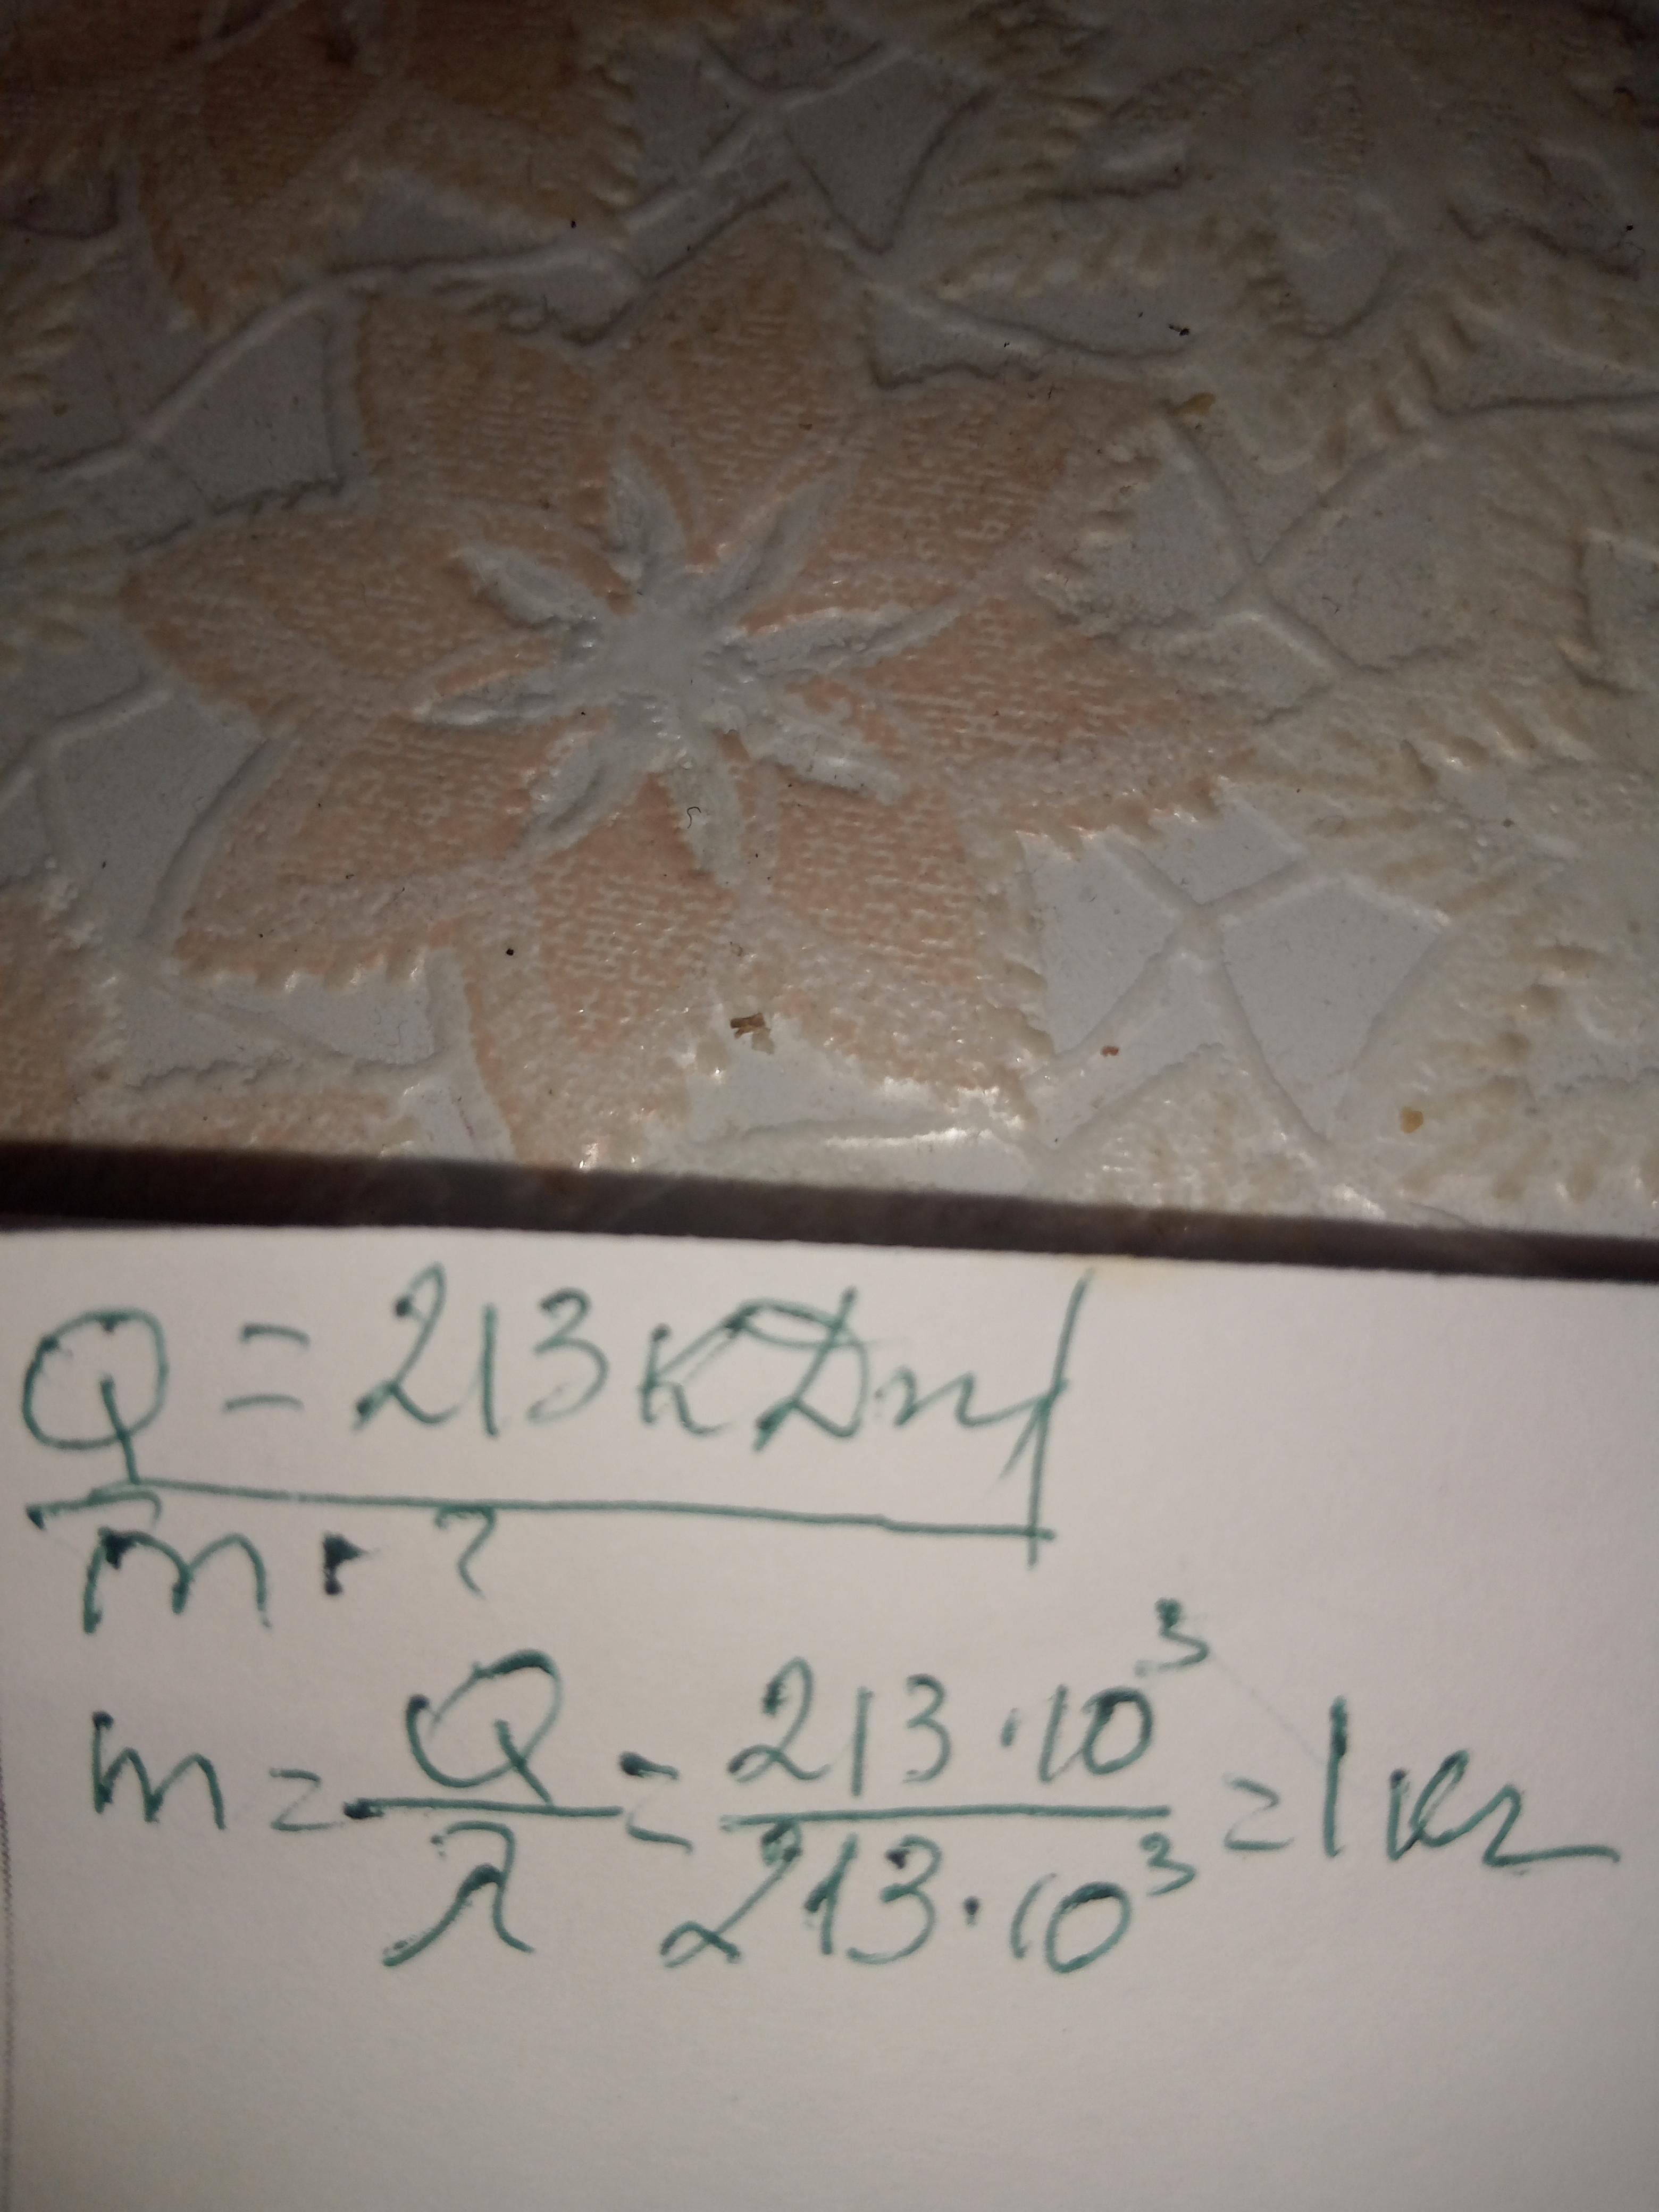 Q = 213 кДж
m - ?
m = Q/λ = 213·10³/213·10³ = 1 кг